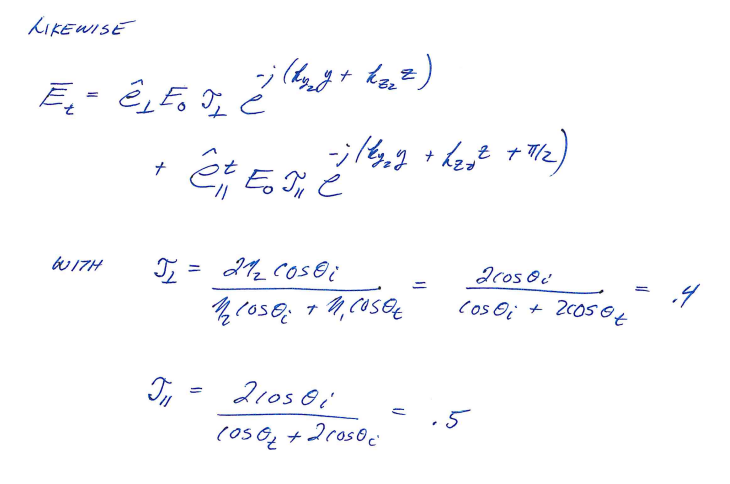 LIKEWISE
Ē_t = ê_⊥ E_0 𝒯_⊥ e^{-j(k_{y2} y + k_{z2} z)}
+ ê_∥^t E_0 𝒯_∥ e^{-j(k_{y2} y + k_{z2} z + π/2)}
WITH 𝒯_⊥ = 2η_2 COSθ_i / (η_2 COSθ_i + η_1 COSθ_t) = 2COSθ_i / (COSθ_i + 2COSθ_t) = .4
𝒯_∥ = 2COSθ_i / (COSθ_t + 2COSθ_i) = .5